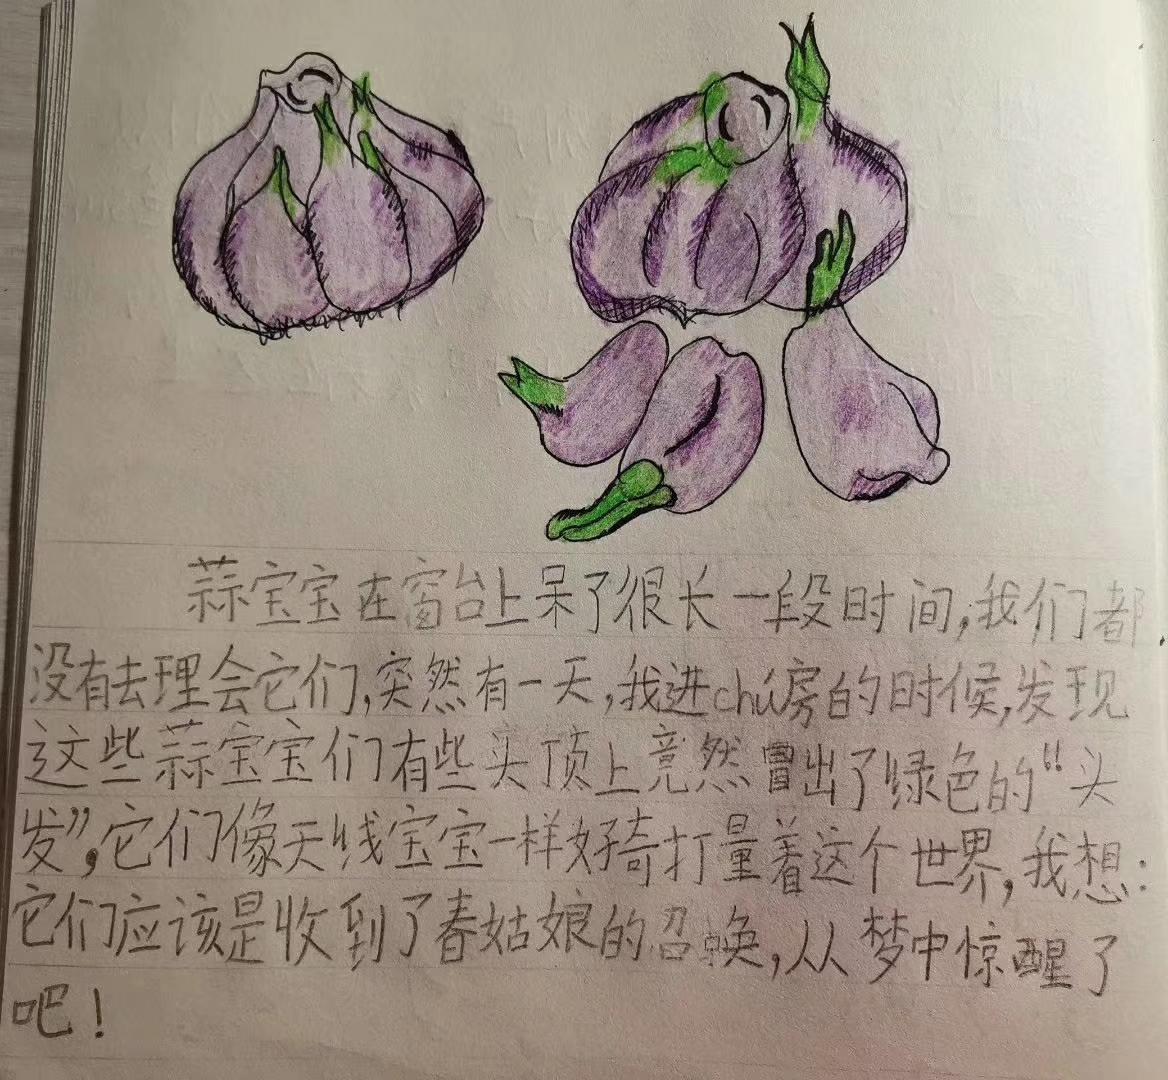 蒜宝宝在窗台上呆了很长一段时间,我们都
没有去理会它们,突然有一天,我进chú房的时候,发现
这些蒜宝宝们有些头顶上竟然冒出了绿色的“头
发”,它们像天线宝宝一样好奇打量着这个世界,我想:
它们应该是收到了春姑娘的召唤,从梦中惊醒了
吧!